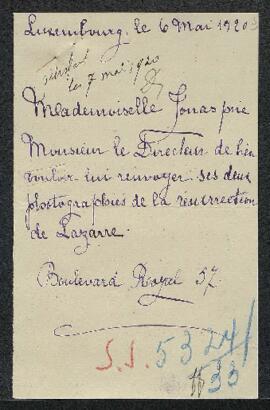 Luxembourg, le 6 Mai 1920
les 7 mai 1920
Mademoiselle Jonas prie
Monsieur le Directeur de bien
vouloir lui renvoyer ses deux
photographies de la résurrection
de Lazarre.
Boulevard Royal 37
S.S. 5324/
33